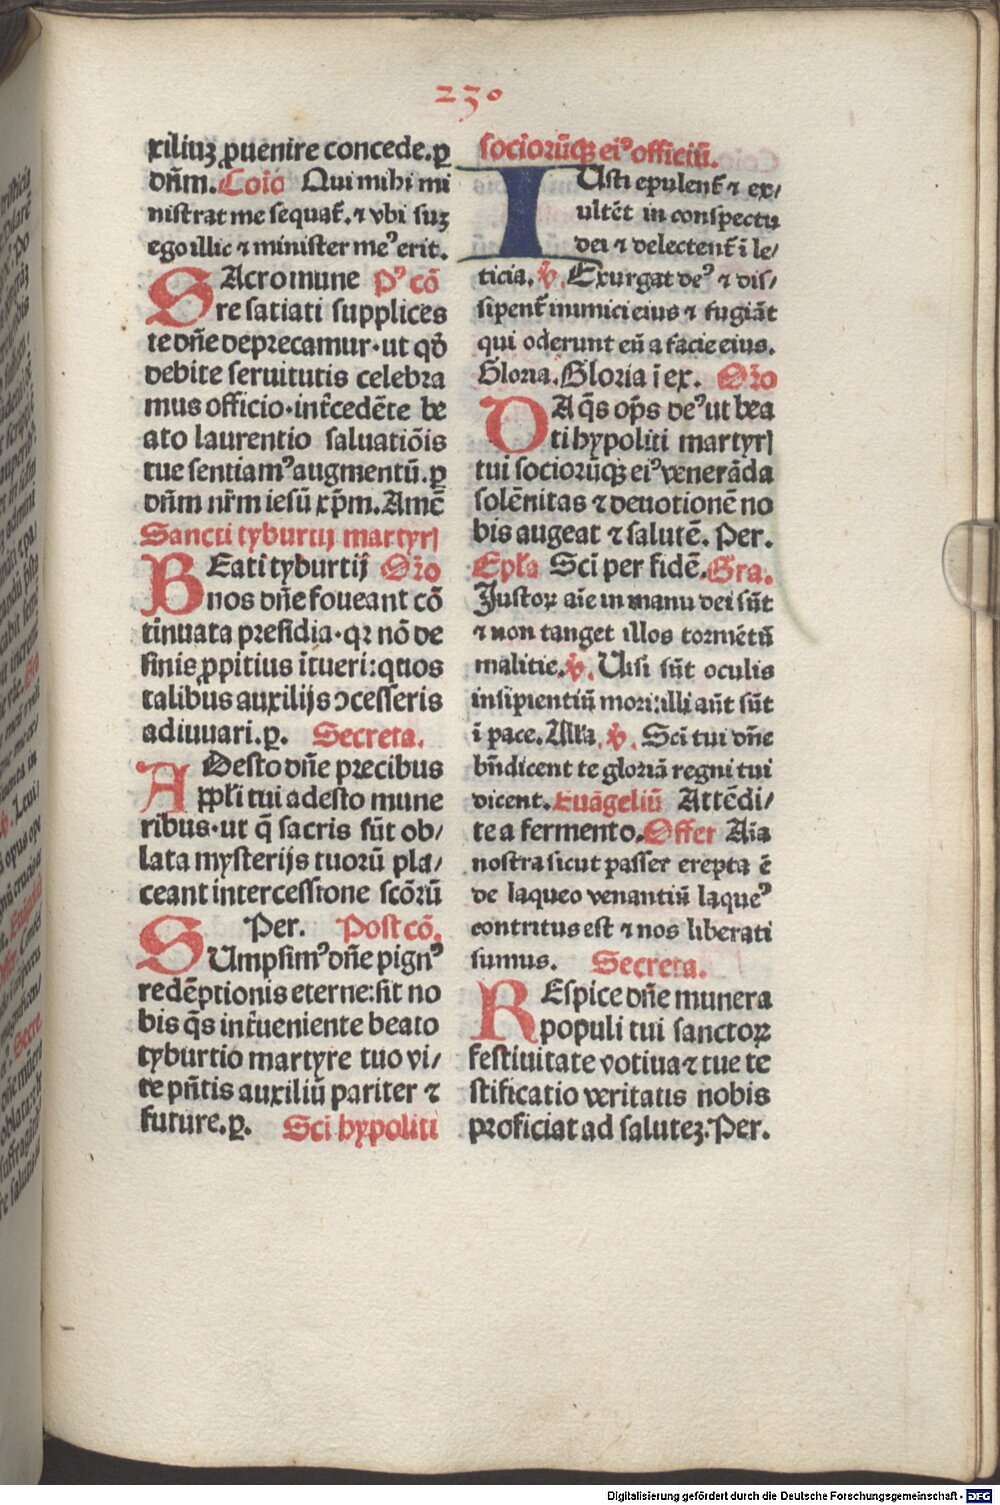 230
xiliuꝫ ꝓuenire concede.ꝑ
dñm. Coīo Qui mihi mi
nistrat me sequat᷑.⁊ vbi suꝫ
ego illic ⁊ minister meꝰ erit.
SAcro mune Pꝰ cō
re satiati supplices
te dñe deprecamur·ut qd̓
debite seruitutis celebra
mus officio·int̄cedēte be
ato laurentio saluatiōis
tue sentiamꝰ augmentū.ꝑ
dñm nr̄m iesū xp̄m. Amē
Sancti tyburtij martyrꝭ
BEati tyburtij Orō
nos dñe foueant cō
tinuata presidia·qꝛ nō de
sinis ꝓpitius ītueri:quos
talibus auxilijs ↄcesseris
adiuuari.ꝑ. Secreta.
ADesto dñe precibus
ppl̄i tui adesto mune
ribus·ut q̄ sacris sūt ob/
lata mysterijs tuorū pla/
ceant intercessione scōrū
Per. Post cō.
SUmpsimꝰ dñe pignꝰ
redēptionis eterne:sit no
bis q̄s int̄ueniente beato
tyburtio martyre tuo vi/
te pñtis auxiliū pariter ⁊
future.ꝑ. Sci hypoliti
sociorūqꝫ eiꝰ officiū.
IUsti epulent᷑ ⁊ ex/
ultēt in conspectu
dei ⁊ delectent᷑ ī le/
ticia. ℣. Exurgat deꝰ ⁊ dis/
sipent᷑ inimici eius ⁊ fugiāt
qui oderunt eū a facie eius.
Gloria. Gloria ī ex. Orō
DA q̄s op̄s deꝰ ut bea
ti hypoliti martyrꝭ
tui sociorūqꝫ eiꝰ venerāda
solēnitas ⁊ deuotionē no
bis augeat ⁊ salutē. Per.
Epl̄a Sci per fidē. Gra.
Justoꝝ aīe in manu dei sūt
⁊ non tanget illos tormētū
malitie. ℣. Uisi sūt oculis
insipientiū mori:illi aūt sūt
ī pace. Alla. ℣. Sci tui dñe
bñdicent te gloriā regni tui
dicent. Euāgeliū Attēdi/
te a fermento. Offer Aīa
nostra sicut passer erepta ē
de laqueo venantiū laqueꝰ
contritus est ⁊ nos liberati
sumus. Secreta.
REspice dñe munera
populi tui sanctoꝝ
festiuitate votiua ⁊ tue te
stificatio veritatis nobis
proficiat ad saluteꝫ. Per.
Digitalisierung gefördert durch die Deutsche Forschungsgemeinschaft - DFG